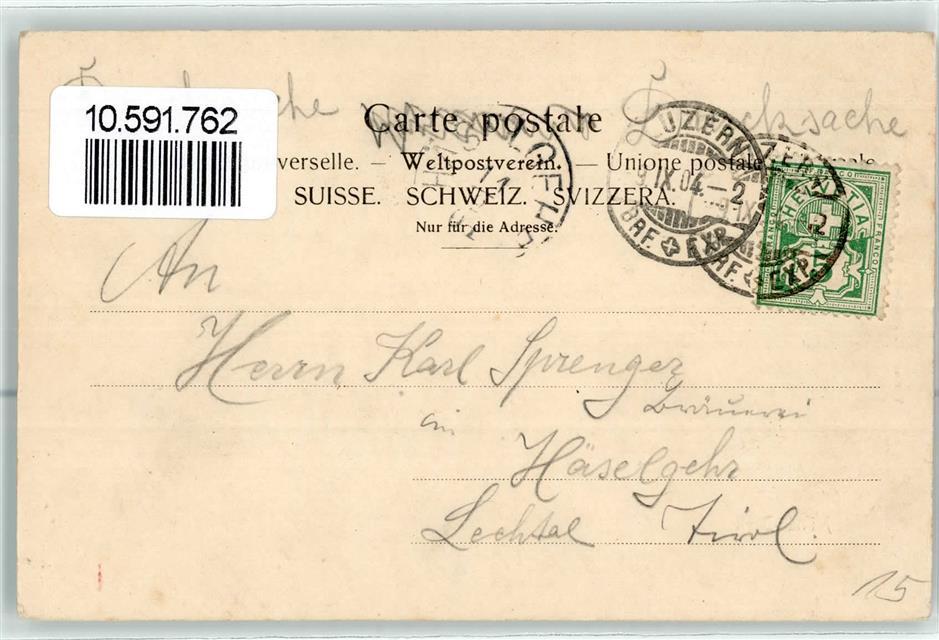 10.591.762
Drucksache
Carte postale
verselle. — Weltpostverein. — Unione postale
SUISSE. SCHWEIZ. SVIZZERA.
Nur für die Adresse.
UZERN
IX.04.–2
BRF. EXP.
RF. EXP.
HELVETIA
FRANCO
An
Herrn Karl Sprenger
Bräuerei
in
Häselgehr
Lechtal Tirol.
15